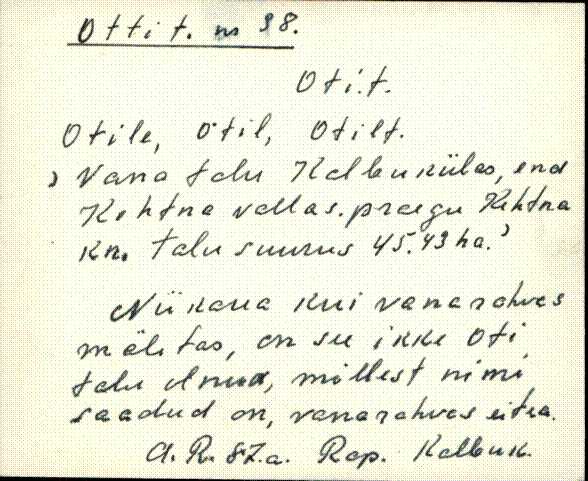 Otti t. nr 98.
Oti t.
Otile, Otil, Otilt.
, Vana talu Kalbukülas, end
Kehtna vallas. praegu Kehtna
kn. talu suurus 45.43 ha.'
Niikaua kui vanarahvas
mäletas, on see ikke Oti
talu olnud, millest nimi
saadud on, vanarahvas ei tea.
A. R. 87.a. Rap. Kalbuk.